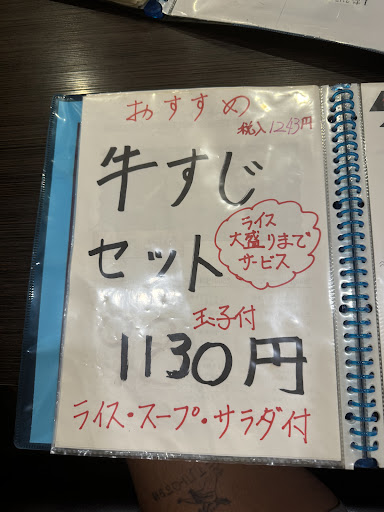 おすすめ
税入1243円
牛すじ
セット
ライス
大盛りまで
サービス
玉子付
1130円
ライス・スープ・サラダ付